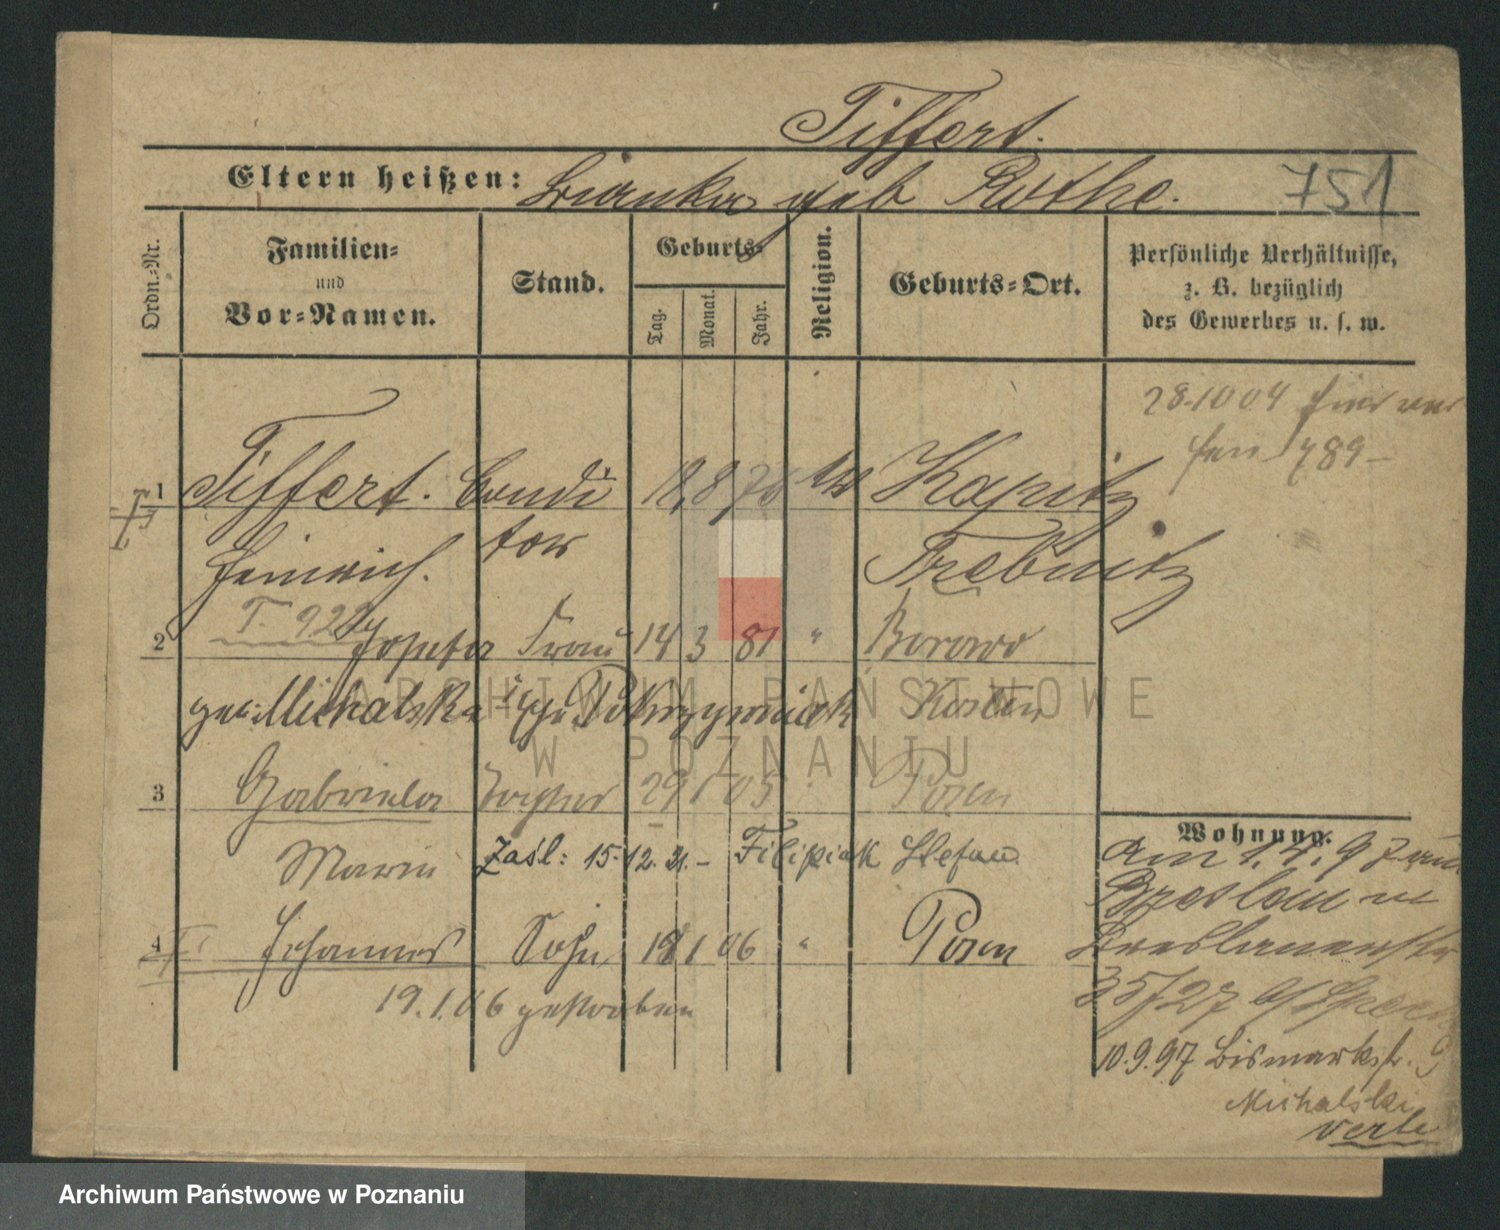 Tiffert.
Eltern heißen: Bianka geb Rothe. 751
Ordn.-Nr.
Familien-
und
Vor-Namen.
Stand.
Geburts-
Tag.
Monat.
Jahr.
Religion.
Geburts-Ort.
Persönliche Verhältnisse,
z. B. bezüglich
des Gewerbes u. s. w.
28.10 04
789
1 Tiffert. Condi 18. 8 76 Kapitz
Heinrich. tor Trebnitz
T. 922
2 Josefa Frau 14 3 81 " Borowo
geb. Michalska Pokrzywnicek Kosten
3 Gabriela Tochter 29 1 05 " Posen
Maria Zaśl: 15.12.31.- Filipiak Stefan
4 Johannes Sohn 18 1 06 " Posen
19.1.06 gestorben
Wohnung.
am 1.7.97 aus
Breslau
Breslauerstr
35/27
10.9.97 Bismarkstr. 9
Michalski
ARCHIWUM PAŃSTWOWE
W POZNANIU
Archiwum Państwowe w Poznaniu